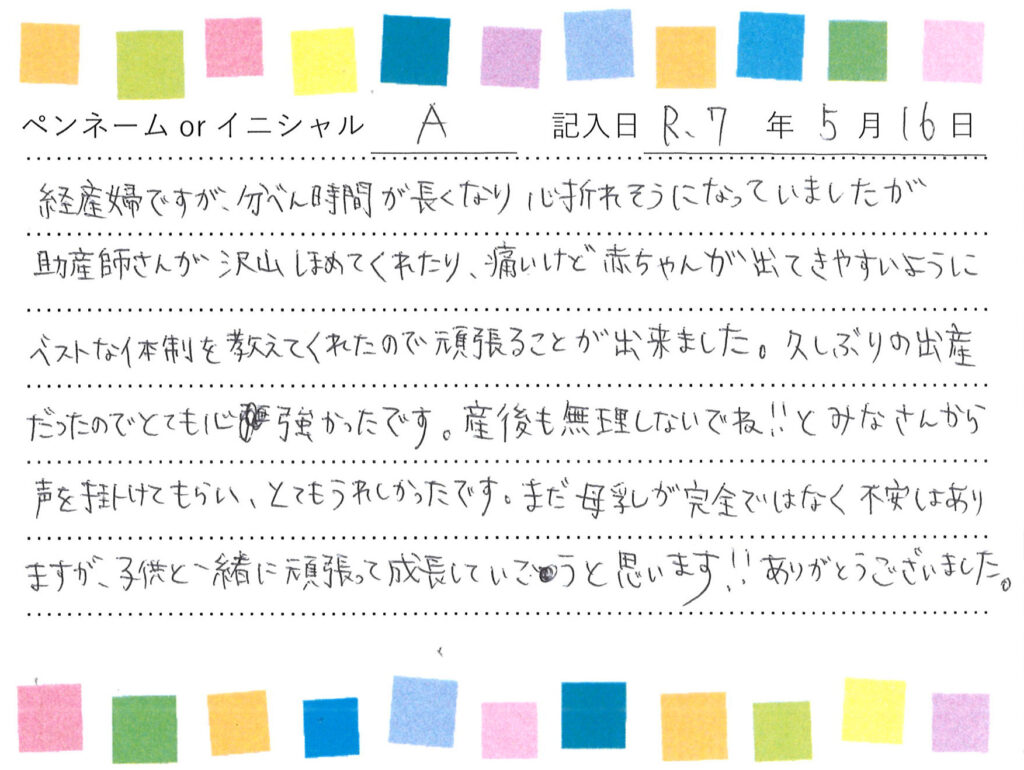 ペンネーム or イニシャル A 記入日 R、7 年 5 月 16 日
経産婦ですが、分べん時間が長くなり 心折れそうになっていましたが
助産師さんが 沢山ほめてくれたり、痛いけど 赤ちゃんが出てきやすいように
ベストな体制を教えてくれたので頑張ることが出来ました。久しぶりの出産
だったのでとても心強かったです。産後も無理しないでね!!とみなさんから
声を掛けてもらい、とてもうれしかったです。まだ母乳が完全ではなく不安はあり
ますが、子供と一緒に頑張って成長していこうと思います!!ありがとうございました。